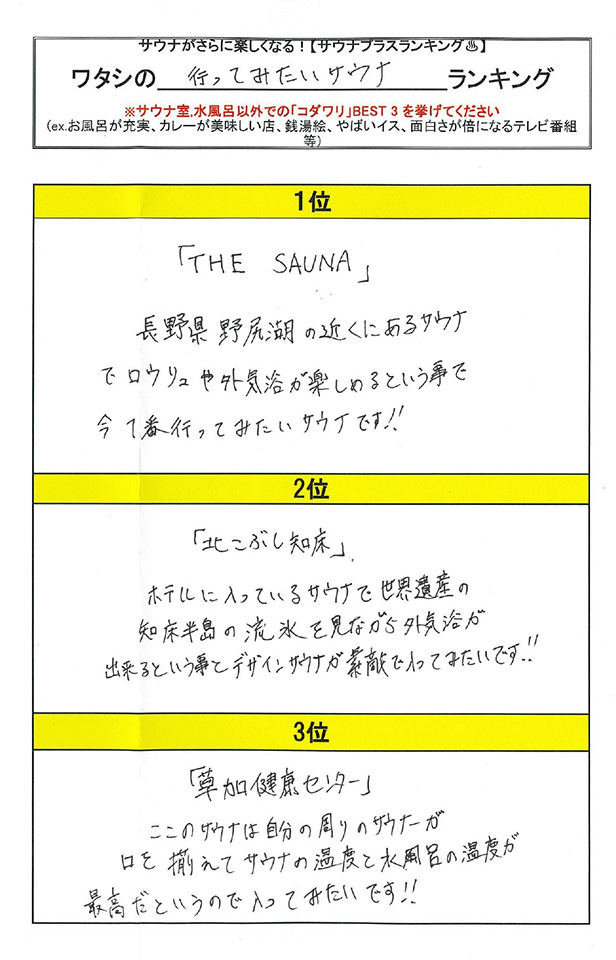 サウナがさらに楽しくなる！【サウナプラスランキング♨】
ワタシの 行ってみたいサウナ ランキング
※サウナ室,水風呂以外での「コダワリ」BEST 3 を挙げてください
（ex.お風呂が充実、カレーが美味しい店、銭湯絵、やばいイス、面白さが倍になるテレビ番組
等）
1位
「THE SAUNA」
長野県 野尻湖の近くにあるサウナ
でロウリュや外気浴が楽しめるという事で
今1番行ってみたいサウナです!!
2位
「北こぶし知床」
ホテルに入っているサウナで世界遺産の
知床半島の流氷を見ながら外気浴が
出来るという事とデザインサウナが素敵で入ってみたいです!!
3位
「草加健康センター」
ここのサウナは自分の周りのサウナーが
口を揃えてサウナの温度と水風呂の温度が
最高だというので入ってみたいです!!